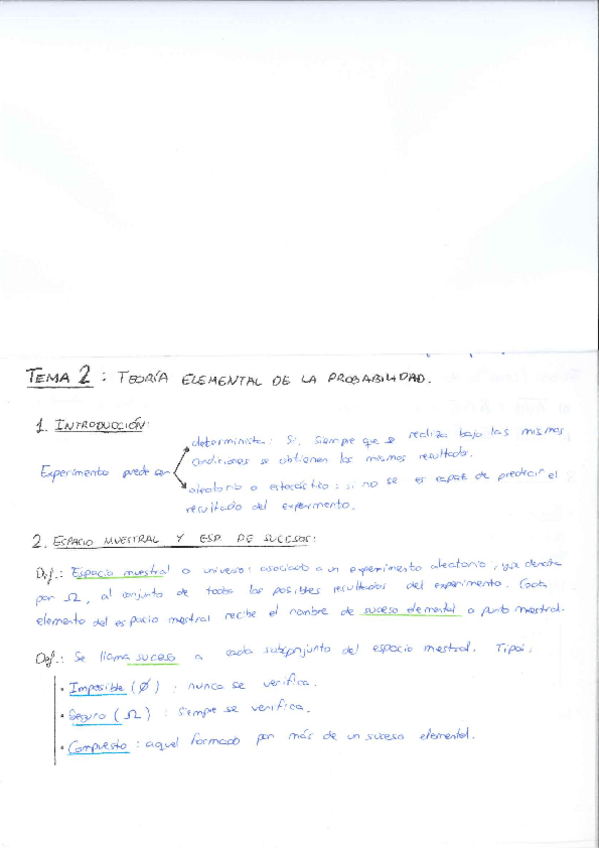 TEMA 2 : TEORÍA ELEMENTAL DE LA PROBABILIDAD.
1. INTRODUCCIÓN:
determinista: Si, siempre que se realiza bajo las mismas
condiciones se obtienen los mismos resultados.
Experimento puede ser
aleatorio o estocástico: si no se es capaz de predecir el
resultado del experimento.
2. ESPACIO MUESTRAL Y ESP. DE SUCESOS:
Def.: Espacio muestral o universo: asociado a un experimento aleatorio, y se denota
por Ω, al conjunto de todos los posibles resultados del experimento. Cada
elemento del espacio mestral recibe el nombre de suceso elemental o punto mestral.
Def.: Se llama suceso a cada subconjunto del espacio mestral. Tipos:
· Imposible (Ø) : nunca se verifica.
· Seguro (Ω) : Siempre se verifica.
· Compuesto : aquel formado por más de un suceso elemental.